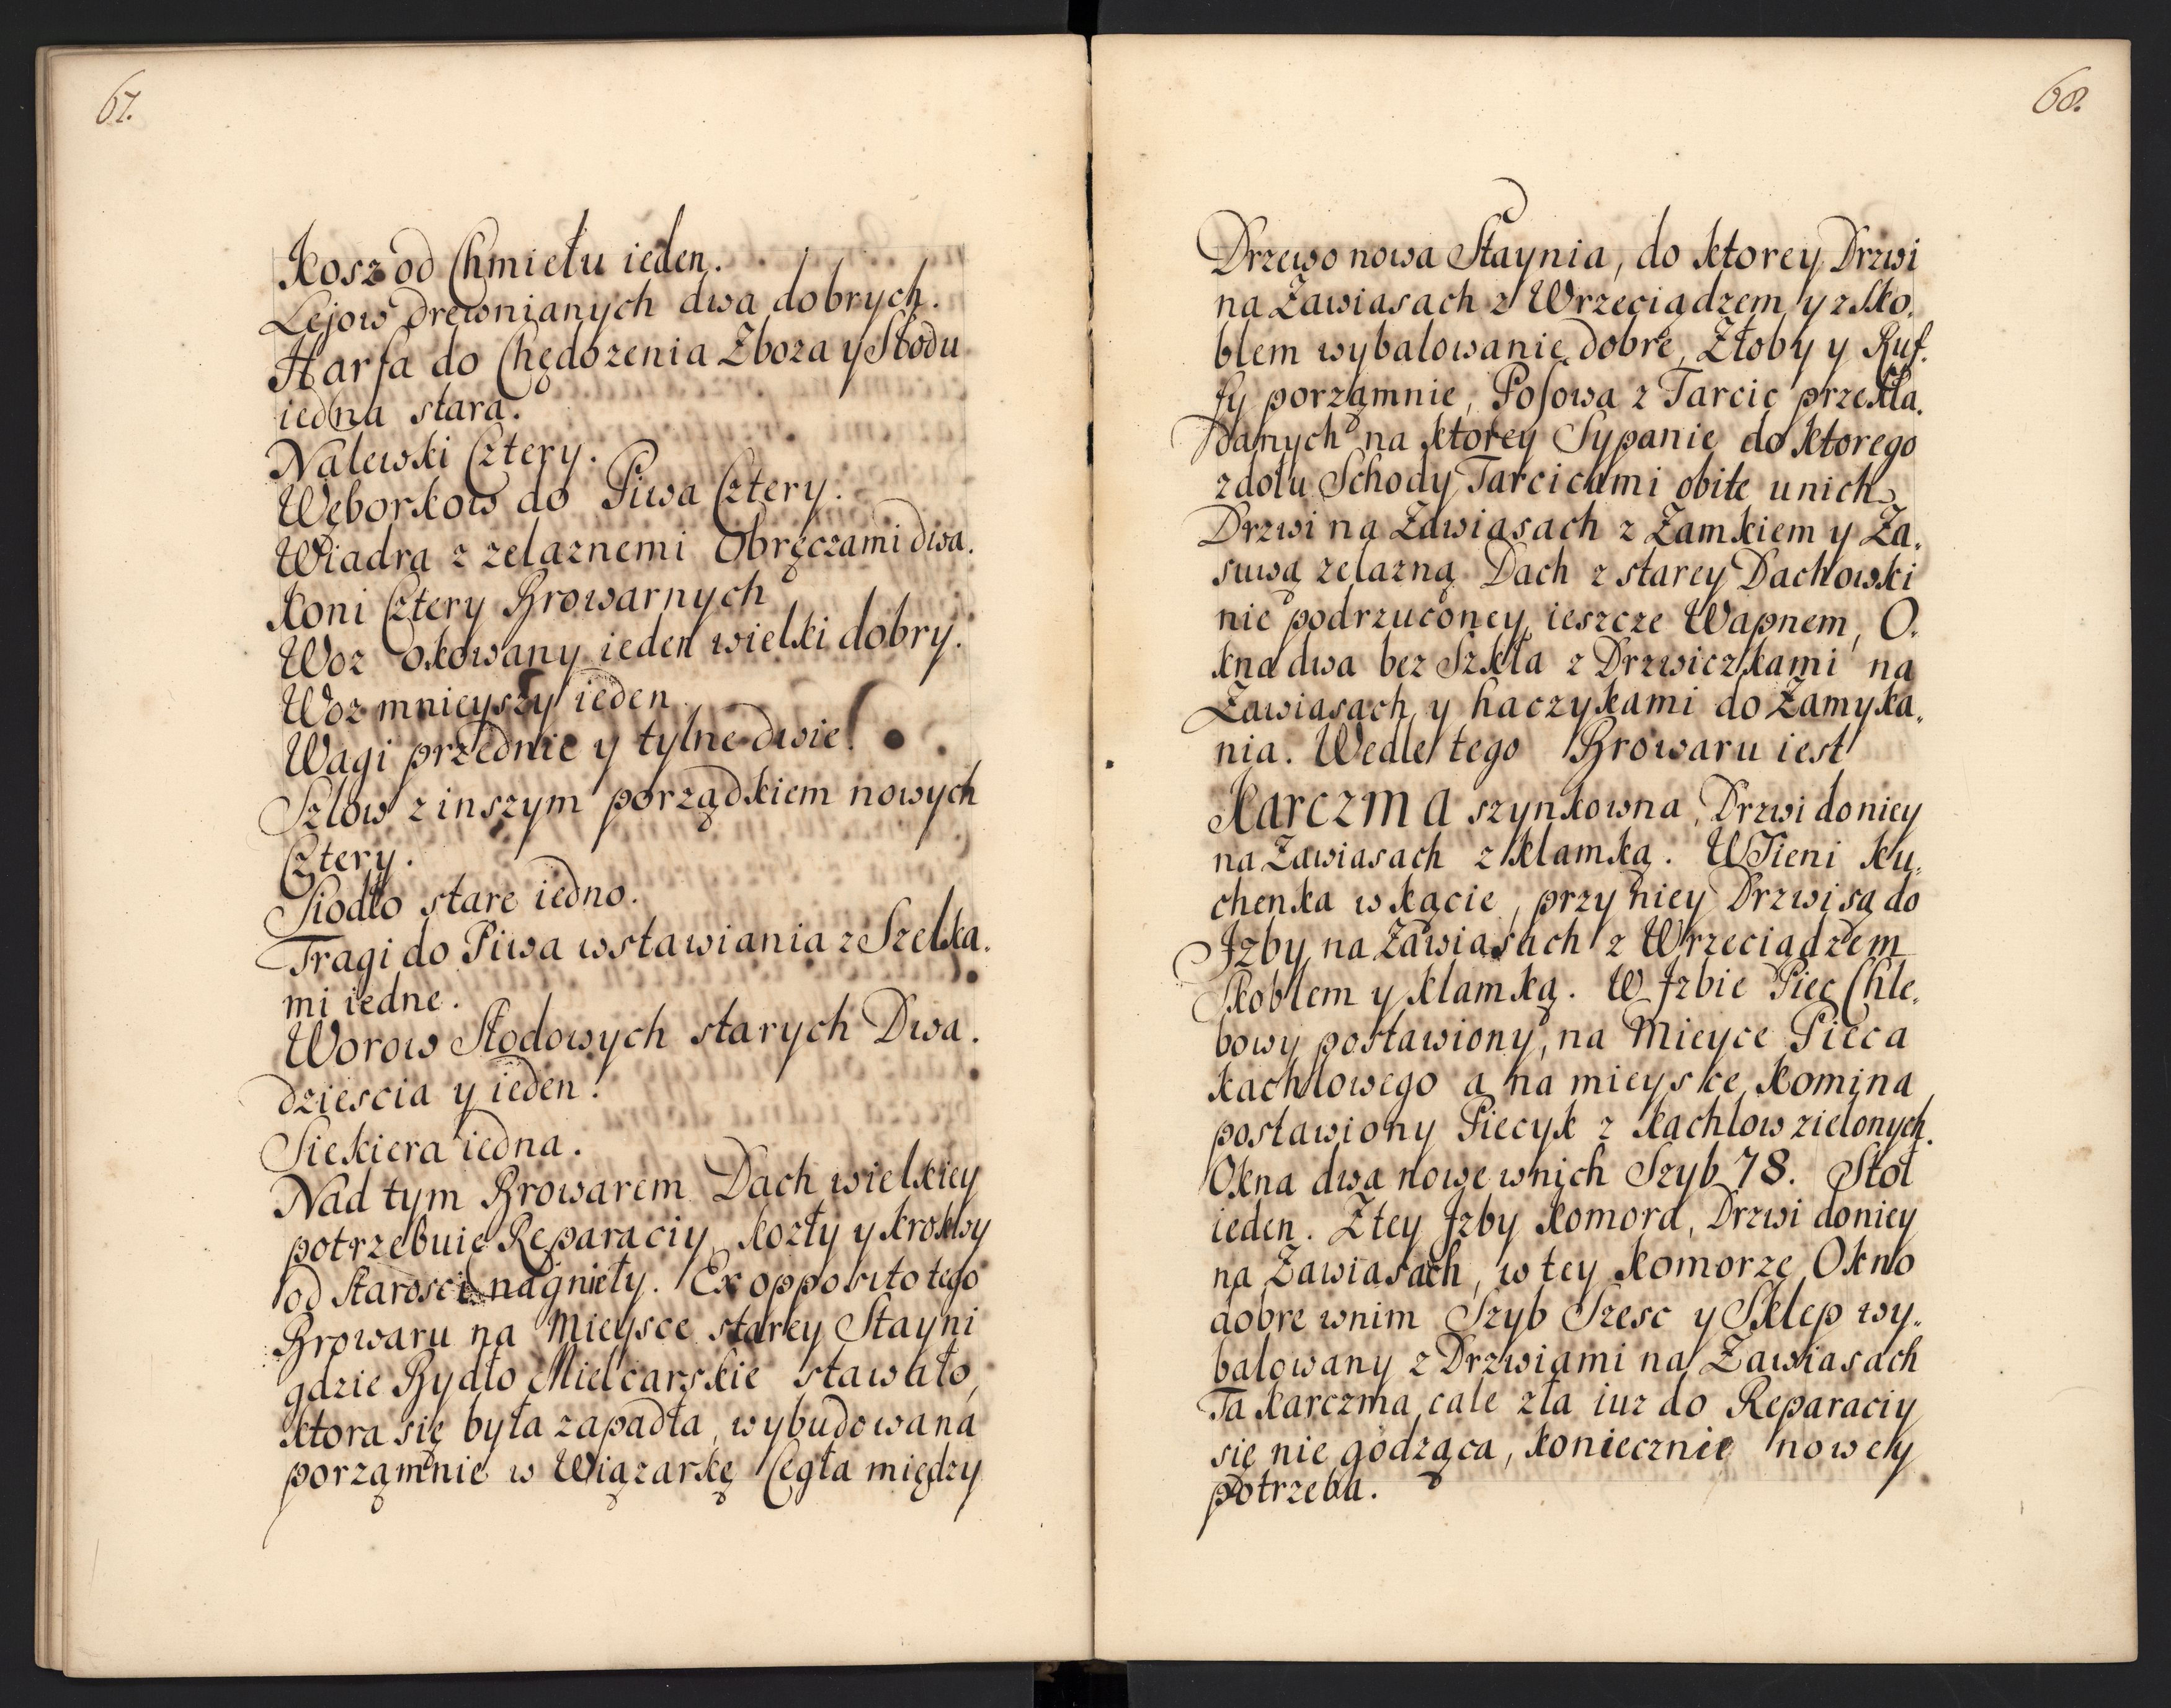 67.
Kosz od Chmielu ieden.
Lejow drewnianych dwa dobrych.
Harfa do Chędozenia Zboza y Słodu
iedna stara.
Nalewski Cztery.
Węborkow do Piwa Cztery.
Wiadra z zelaznemi Obręczami dwa.
Koni Cztery Browarnych
Woz okowany ieden wielki dobry.
Woz mnieyszy ieden
Wagi przednie y tylne dwie.
Szlow z inszym porządkiem nowych
Cztery.
Siodło stare iedno.
Tragi do Piwa wstawiania z Szelka.
mi iedne.
Worow Słodowych starych Dwa.
dziescia y ieden.
Siekiera iedna.
Nad tym Browarem Dach wielkiey
potrzebuie Reparaciy, kozły y krokwy
od Starosci nagnieły. Ex opposito tego
Browaru na Mieysce starey Stayni
gdzie Bydło Mielcarskie stawało,
ktora się była zapadła, wybudowana
porzamnie w Wiązarkę Cegła między
68.
Drzewo nowa Staynia, do ktorey Drzwi
na Zawiasach z Wrzeciądzem y z sko.
blem wybalowanie dobre, Złoby y Ruf.
fy porzamnie, Posowa z Tarcic przekła.
danych na ktorey Sypanie do ktorego
z dołu Schody Tarcicami obite u nich
Drzwi na Zawiasach z Zamkiem y Za.
suwą zelazną Dach z starey Dachowki
nie podrzuconey ieszcze Wapnem, O.
kna dwa bez Szkła z Drzwiczkami na
Zawiasach y haczykami do Zamyka.
nia. Wedle tego Browaru iest
Karczma szynkowna, Drzwi do niey
na Zawiasach z klamką. W Sieni Ku.
chenka w kącie, przy niey Drzwi są do
Jzby na Zawiasach z Wrzeciądzem
Skoblem y klamką. W Jzbie Piec Chle.
bowy postawiony, na Mieyce Pieca
kachlowego a na mieysce Komina
postawiony Piecyk z kachlow zielonych.
Okna dwa nowe w nich Szyb 78. Stoł
ieden. Z tey Jzby Komora, Drzwi do niey
na Zawiasach, w tey Komorze Okno
dobre w nim Szyb Szesc y Sklep wy.
balowany z Drzwiami na Zawiasach
Ta karczma cale zła iuz do Reparaciy
się nie godząca, koniecznie nowey
potrzeba.